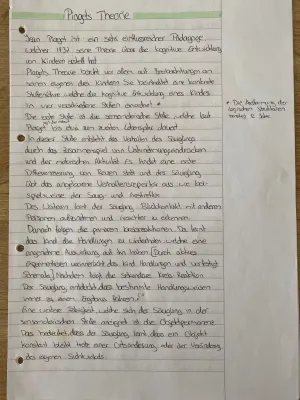 Piagets Theorie
Jean Piaget ist ein sehr einflussreicher Pädagoge
welcher 1937 eine Theorie über die kognitive Entwicklung
von Kindern erstellt hat.
Piagets Theorie beruht vor allem auf Beobachtungen an
seinen eigenen drei Kindern. Sie beinhaltet eine konkrete
welche die kognitive Entwicklung eines Kindes
in vier verschiedene Stufen einordnet *
Die erste Stufe ist die sensomotorische Stufe, welche laut
Piaget bis etwa zum zweiten Lebensjahr dauert
In dieser Stufe entsteht das Verhalten des Säuglings
durch das Zusammenspiel von Wahrnehmungseindrücken
und der motorischen Aktivität. Es findet eine erste
Differenzierung von
das angeborene Verhaltensrepertoire aus, wie bei-
spielsweise der Saug- und
Des Weiteren lernt der Säugling, Blickkontakt mit anderen
Personen aufzunehmen und
Danach folgen die primären Kreisreaktionen. Da lernt
das Kind die Handlungen zu wiederholen, welche eine
angenehme Auswirkung auf ihn haben [Durch aktives
Experimentieren verinnerlicht das Kind Handlungen und
Schemata] Nachdem folgt die sekundäre Kreis Reaktion
Der Säugling entdeckt, dass bestimmte Handlungsweisen
immer zu einem Ergebnis führen.
Eine weitere Fähigkeit, welche sich der Säugling in der
sensomotorischen Stufe aneignet ist die Objektpermanenz.
Das bedeutet, dass der Säugling lernt, dass ein Objekt
konstant bleibt trotz einer Ortsänderung oder der Veränderung
des eigenen
* Die
logischen Strukturen
12 Jahre